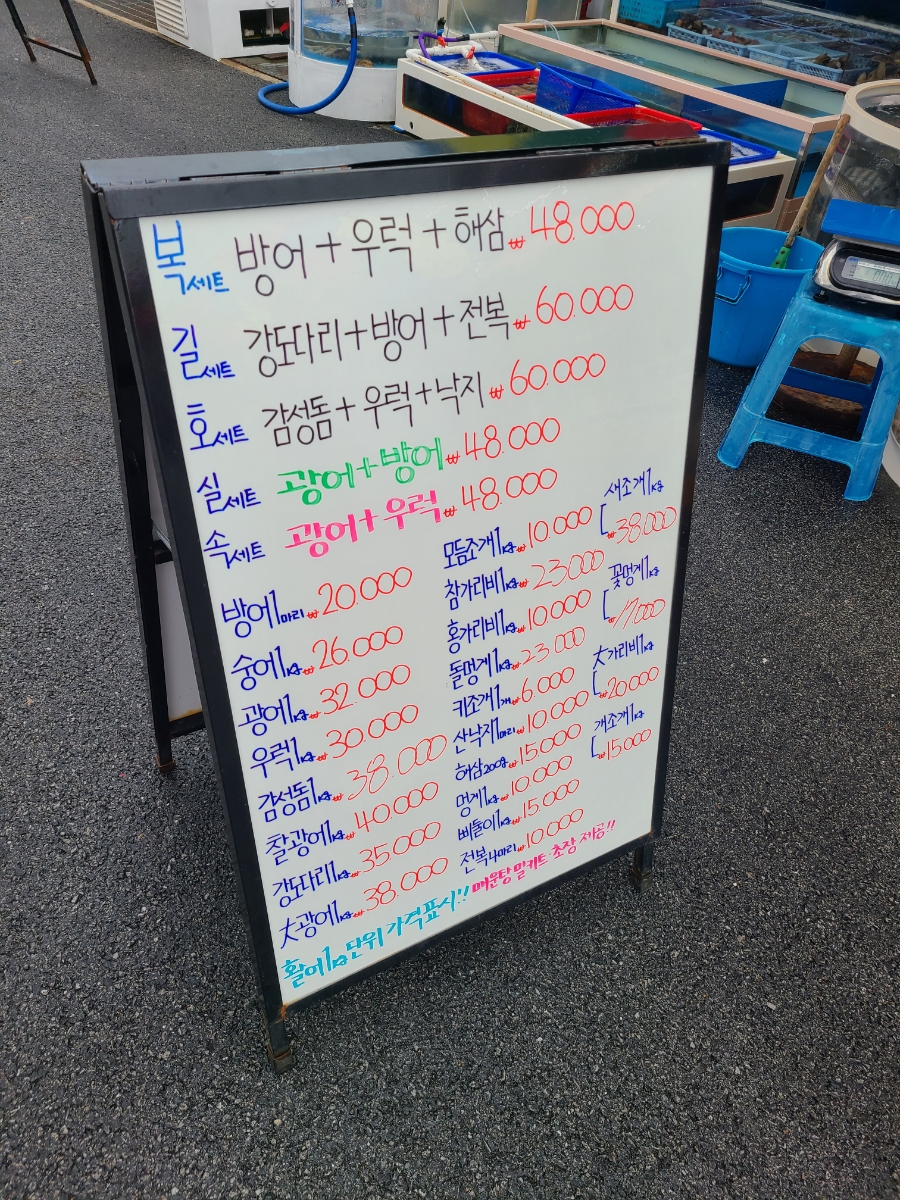 복세트 방어+우럭+해삼 ₩48.000
길세트 강도다리+방어+전복 ₩60.000
호세트 감성돔+우럭+낙지 ₩60.000
실세트 광어+방어 ₩48.000
속세트 광어+우럭 ₩48.000
방어1마리 ₩20.000
숭어1kg ₩26.000
광어1kg ₩32.000
우럭1kg ₩30.000
감성돔1kg ₩38.000
찰광어1kg ₩40.000
강도다리1kg ₩35.000
大광어1kg ₩38.000
모듬조개1kg ₩10.000
참가리비1kg ₩23.000
홍가리비1kg ₩10.000
돌멍게1kg ₩23.000
키조개1개 ₩6.000
산낙지1마리 ₩10.000
해삼200g ₩15.000
멍게1kg ₩10.000
삐뚤이1kg ₩15.000
전복4마리 ₩10.000
새조개1kg
₩38.000
꽃멍게1kg
₩17.000
大가리비1kg
₩20.000
개조개1kg
₩15.000
활어1kg단위 가격표시!! 매운탕 밀키트·초장 제공!!